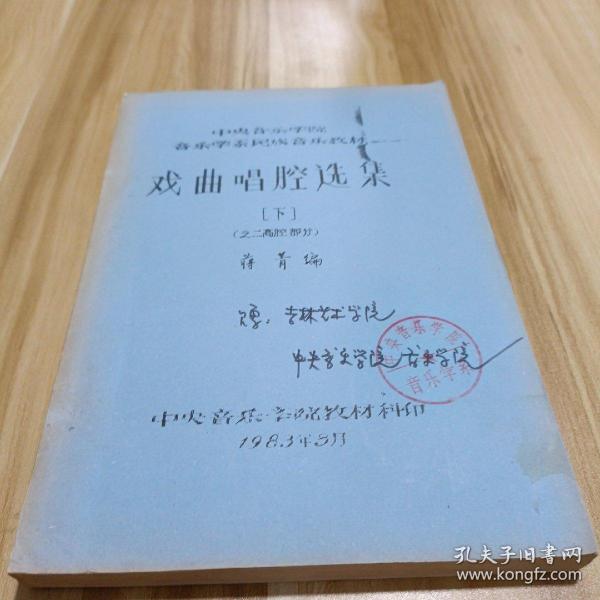 中央音乐学院
音乐学系民族音乐教材——
戏曲唱腔选集
[下]
(之二高腔部分)
蒋菁编
赠：吉林艺术学院
中央音乐学院音乐学院
中央音乐学院
音乐学系
中央音乐学院教材科印
1983年5月
孔夫子旧书网
www.kongfz.com